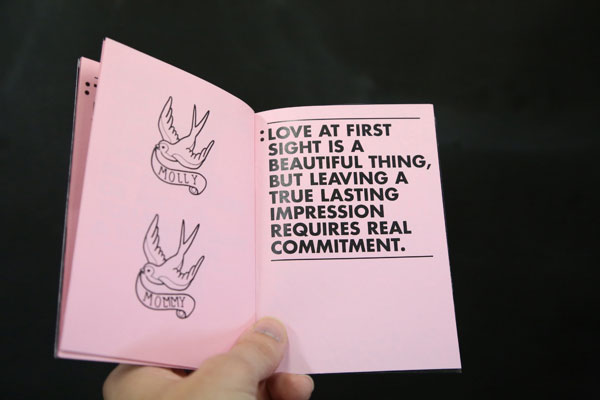 MOLLY
MOMMY
:LOVE AT FIRST
SIGHT IS A
BEAUTIFUL THING,
BUT LEAVING A
TRUE LASTING
IMPRESSION
REQUIRES REAL
COMMITMENT.